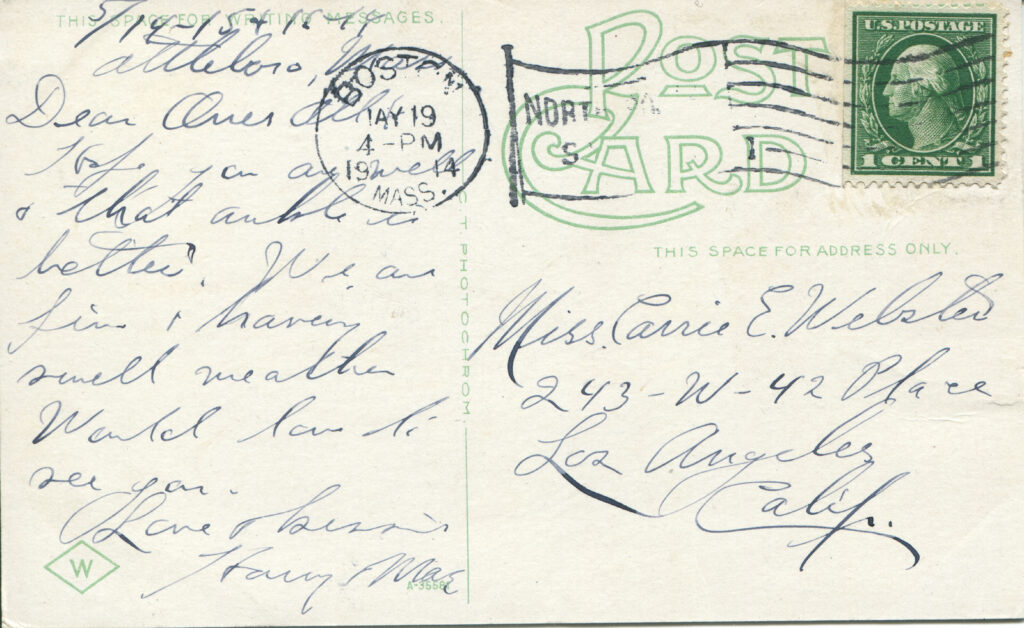 THIS SPACE FOR WRITING MESSAGES.
Attleboro,
Dear
Hope you are well
& that ankle is
better. We are
fine & having
swell weather
Would love to
see you.
Love &
Harry & Mae
W
A-35581
PHOTOCHROM
BOSTON
MAY 19
4-PM
1914
MASS.
NORTH
S
POST
CARD
U.S. POSTAGE
1 CENT 1
THIS SPACE FOR ADDRESS ONLY.
Miss. Carrie E. Webster
243-W-42 Place
Los Angeles
Calif.